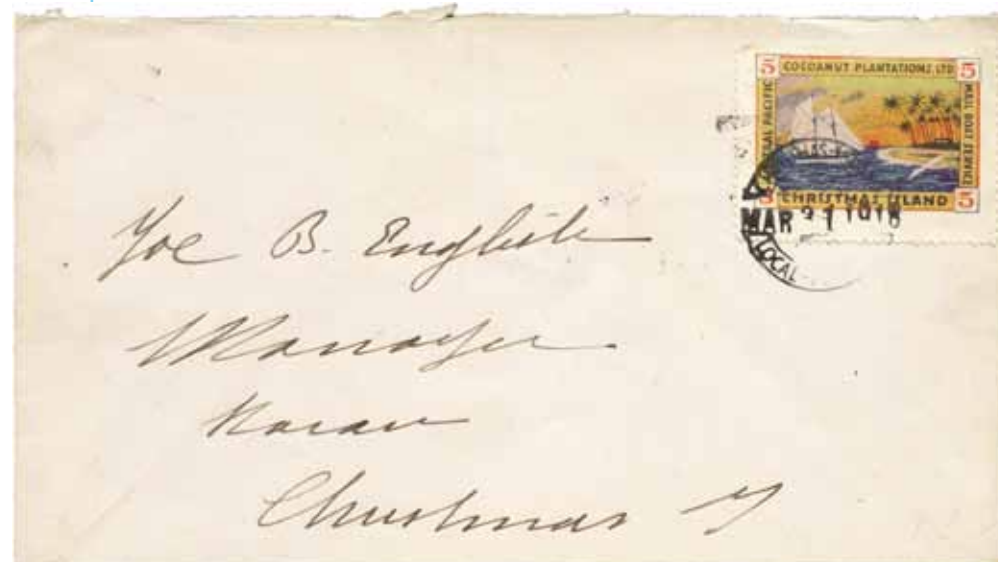 5 COCOANUT PLANTATIONS LTD 5
CENTRAL PACIFIC
MAIL BOAT SERVICE
5 CHRISTMAS ISLAND 5
MAR 1918
LOCAL
Joe B. English
Manager
Christmas